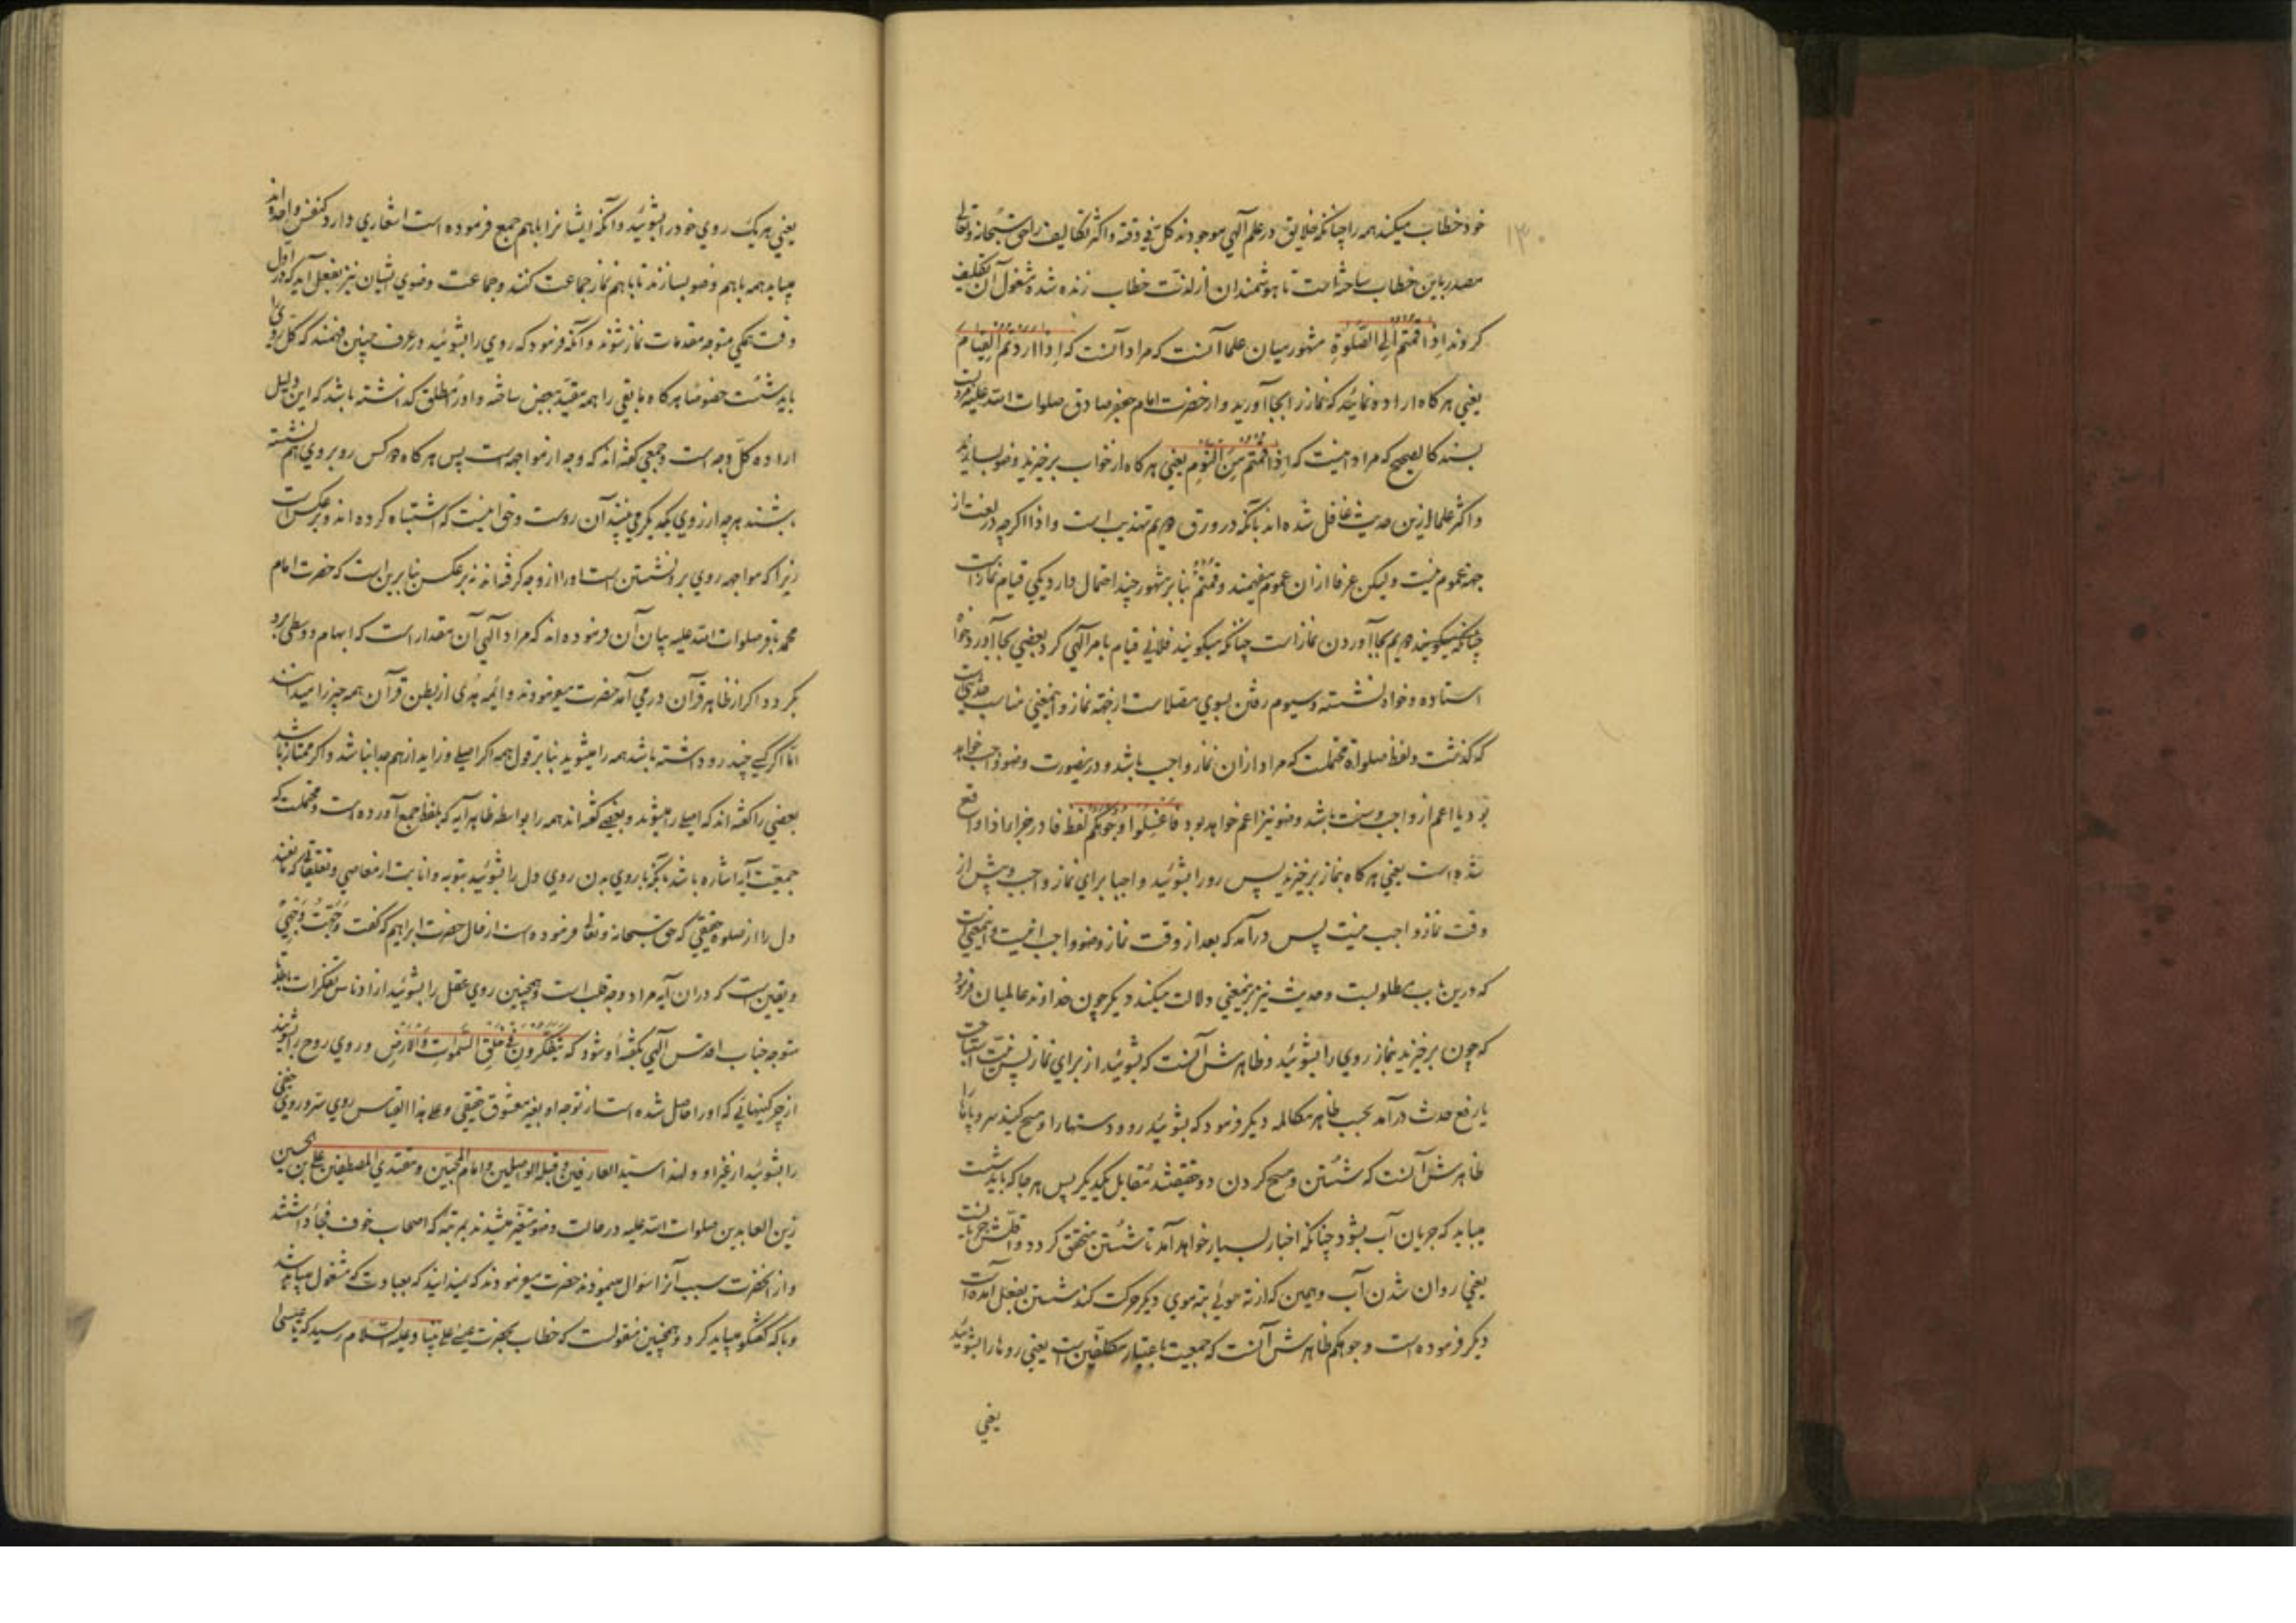 ۱۳۰
خود خطاب میکند همه را چنانکه خلایق در علم آلهی موجودند کل فی وقته و اکثر تکالیف را حق سبحانه و تعالی
مصدر باین خطاب ساخته است تا هوشمندان از لذت خطاب زنده شده مشغول آن تکلیف
کردند اِذا قُمتُم اِلَی الصَّلوةِ مشهور میان علما آنست که مراد آنست که اِذا اَرَدتُمُ القِیامَ
یعنی هرکاه اراده نمائید که نماز را بجا آورید و از حضرت امام جعفر صادق صلوات الله علیه
بسند کالصحیح که مراد اینست که اِذا قُمتُم مِنَ النَّومِ یعنی هرکاه از خواب برخیزید وضو بسازید
و اکثر علما ازین حدیث غافل شده اند با آنکه در ورق دویم تهذیب است و اذا اکرچه در لغت از
جهة عموم نیست ولیکن عرفا ازان عموم میفهمند و قُمتُم بنا بر مشهور چند احتمال دارد یکی قیام نماز است
چنانکه میکویند دویم بجا آوردن نماز است چنانکه میکویند فلانی قیام بامر آلهی کرد یعنی بجا آورد خواه
استاده و خواه نشسته و سیوم رفتن بسوی مصلاست از جهة نماز و اینمعنی مناسب حدیثی است
که کذشت و لفظ صلواة محتملست که مراد ازان نماز واجب باشد و درینصورت وضو واجب خواهد
بود یا اعم از واجب و سنت باشد وضو نیز اعم خواهد بود فَاغسِلُوا وُجُوهَکُم لفظ فا در جزا اذا واقع
شده است یعنی هرکاه بنماز برخیزید پس رو را بشوئید و اجبا برای نماز واجب و پیش از
وقت نماز واجب نیست پس درآمد که بعد از وقت نماز وضو واجب است و اینمعنی
که درین باب مطلوبست و حدیث نیز برینمعنی دلالت میکند دیکر چون خداوند عالمیان فرمود
که چون برخیزید بنماز روی را بشوئید و ظاهرش آنست که بشوئید از برای نماز پس نیت
یا رفع حدث درآمد بحسب ظاهر مکالمه دیکر فرمود که بشوئید رو و دستها را و مسح کنید سر و پاها را
ظاهرش آنست که شستن و مسح کردن دو حقیقتند مقابل یکدیکر پس هرجا که باید شست
میباید که جریان آب بشود چنانکه اخبار بسیار خواهد آمد تا شستن متحقق کردد و اقلش جریانست
یعنی روان شدن آب و همین که از ته موئی بته موی دیکر حرکت کند شستن بفعل آمده است
دیکر فرموده است وجوهکم ظاهرش آنست که جمعیت باعتبار مکلفین است یعنی روها را بشوئید
یعنی
یعنی هریک روی خود را بشوئید و آنکه ایشانرا باهم جمع فرموده است اشعاری دارد کنفس واحدة اند
میباید همه باهم وضو بسازند تا باهم نماز جماعت کنند و جماعت وضوی ایشان نیز بفعل آید که در اول
وقت همکی متوجه مقدمات نماز شوند و آنکه فرمود که روی را بشوئید در عرف چنین میفهمند که کل رو را
باید شست خصوصا هرکاه مابقی را همه مقید ببعض ساخته و او را مطلق کذاشته باشد که این دلیل
اراده کل وجه است و جمعی کفته اند که وجه از مواجهه است پس هرکاه دو کس روبروی هم نشسته
باشند هرچه از روی یکدیکر می بینند آن روست و حق اینست که اشتباه کرده اند و برعکس است
زیرا که مواجهه روی برو نشستن است او را از وجه کرفته اند نه برعکس بنابرین است که حضرت امام
محمد باقر صلوات الله علیه بیان آن فرموده اند که مراد آلهی آن مقدار است که ابهام و وسطی برو
بکردد و اکر از ظاهر قرآن در می آمد حضرت میفرمودند و ائمه هدی از بطن قرآن همه چیز را میدانند
اما اکر کسی چند رو داشته باشد همه را میشوید بنا بر قول همه اکر اصلی و زاید از هم جدا نباشد و اکر ممتاز باشد
بعضی را کفته اند که اصلی را میشوید و بعضی کفته اند همه را بواسطه ظاهر آیه که بلفظ جمع آورده است و محتملست که
جمعیت آن اشاره باشد بآنکه با روی بدن روی دل را بشوئید بتوبه و انابت از معاصی و تعلقاتی که مانعند
دل را از صلوة حقیقی که حق سبحانه و تعالی فرموده است از قال حضرت ابراهیم که کفت وَجَّهتُ وَجهِیَ
و یقین است که دران آیه مراد وجه قلب است و همچنین روی عقل را بشوئید از ادناس تفکرات باطله
متوجه جناب اقدس آلهی بکفته او شود که یَتَفَکَّرُونَ فی خَلقِ السَّمواتِ وَالاَرضِ و روی روح را بشویند
از چرکینهائی که او را حاصل شده است از توجه او بغیر معشوق حقیقی و علی هذا القیاس روی سر و روی خفی
را بشوئید از غیر او و لهذا سید العارفین و قبلة الواصلین و امام المحبین و مقتدی المصطفین علی بن الحسین
زین العابدین صلوات الله علیه در حالت وضو متغیر میشدند بمرتبه که اصحاب خوف فجأه داشتند
و از انحضرت سبب آنرا سؤال مینمودند حضرت میفرمودند که نمیدانید که بعبادت که مشغول میباید شد
و با که کفتکو میباید کرد و همچنین منقولست که خطاب بحضرت عیسی علی نبینا و علیه السلام رسید که یا عیسی